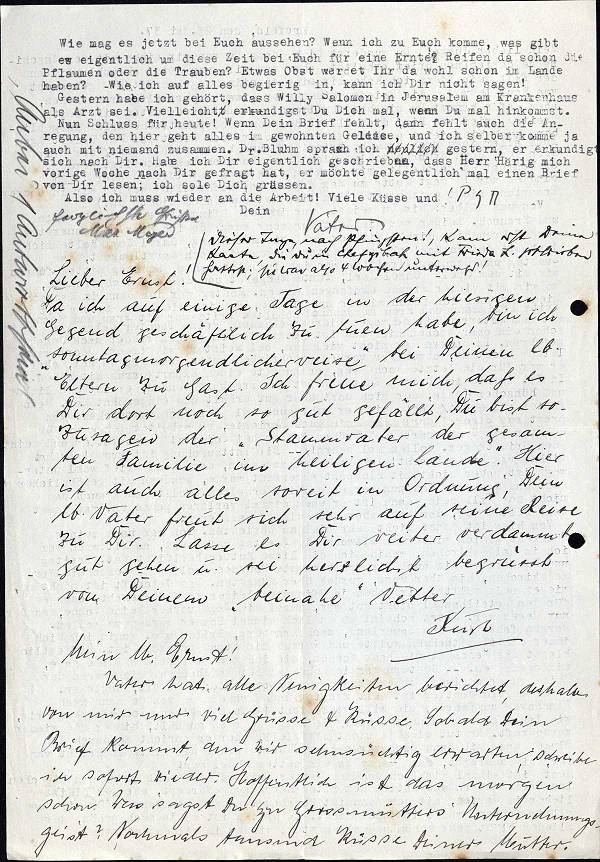 Wie mag es jetzt bei Euch aussehen? Wenn ich zu Euch komme, was gibt
es eigentlich um diese Zeit bei Euch für eine Ernte? Reifen da schon die
Pflaumen oder die Trauben? Etwas Obst werdet Ihr da wohl schon im Lande
haben? -Wie ich auf alles begierig in, kann ich Dir nicht sagen!
Gestern habe ich gehört, dass Willy Salomon in Jerusalem am Krankenhaus
als Arzt sei. Vielleicht erkundigst Du Dich mal, wenn Du mal hinkommst.
Nun Schluss für heute! Wenn Dein Brief fehlt, dann fehlt auch die An-
regung, den hier geht alles im gewohnten Geleise, und ich selber komme ja
auch mit niemand zusammen. Dr. Bluhm sprach ich neulich gestern, er erkundigt
sich nach Dir. Habe ich Dir eigentlich geschrieben, dass Herr Hörig mich
vorige Woche nach Dir gefragt hat, er möchte gelegentlich mal einen Brief
von Dir lesen; ich sole Dich grüssen.
Also ich muss wieder an die Arbeit! Viele Küsse und
Dein
Vater
Max Meyer
Lieber Ernst!
Da ich auf einige Tage in der hiesigen
Gegend geschäftlich zu tuen habe, bin ich
„sonntagmorgendlicherweise" bei Deinen lb.
Eltern zu Gast. Ich freue mich, dass es
Dir dort noch so gut gefällt, Du bist so-
zusagen der „Stammvater der gesam-
ten Familie im heiligen Lande". Hier
ist auch alles soweit in Ordnung, Dein
lb Vater freut sich sehr auf seine Reise
zu Dir. Lasse es Dir weiter verdammt
gut gehen u. sei herzlichst begrüsst
von Deinem „beinahe" Vetter
Kurt
Mein lb. Ernst!
Vater hat alle Neuigkeiten berichtet, deshalb
von mir nur viel Grüsse & Küsse. Sobald Dein
Brief kommt, den wir sehnsüchtig erwarten, schreibe
ich sofort wieder. Hoffentlich ist das morgen
schon. Was sagst Du zu Grossmutters Unternehmungs-
geist? Nochmals tausend Küsse Deiner Mutter.